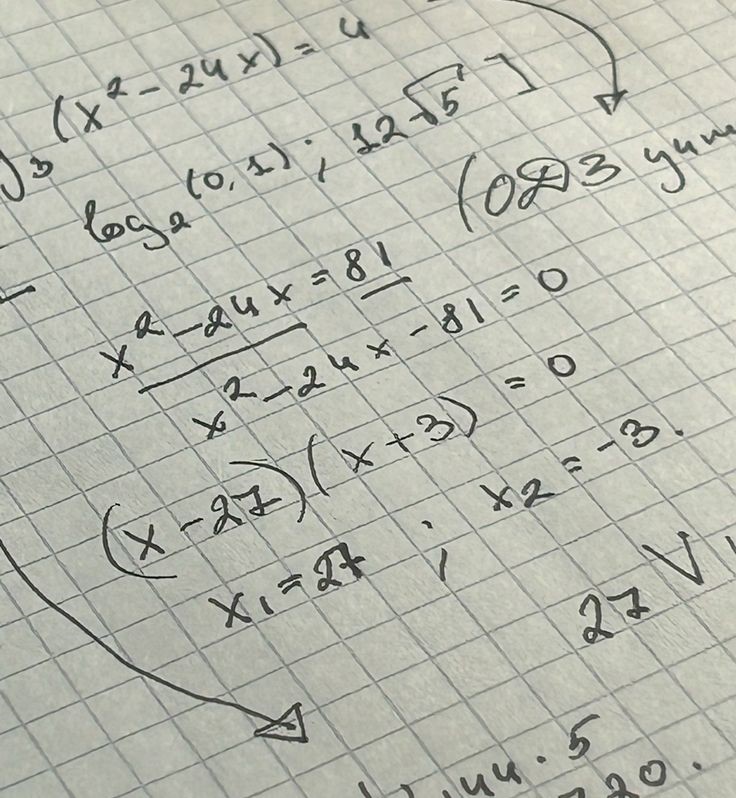 (x² - 24x) = 4
log₂(0,1); 12√5]
(ОДЗ
x² - 24x = 81
x² - 24x - 81 = 0
(x - 27)(x + 3) = 0
x₁ = 27 ; x₂ = -3.
27 V
· 5
20.